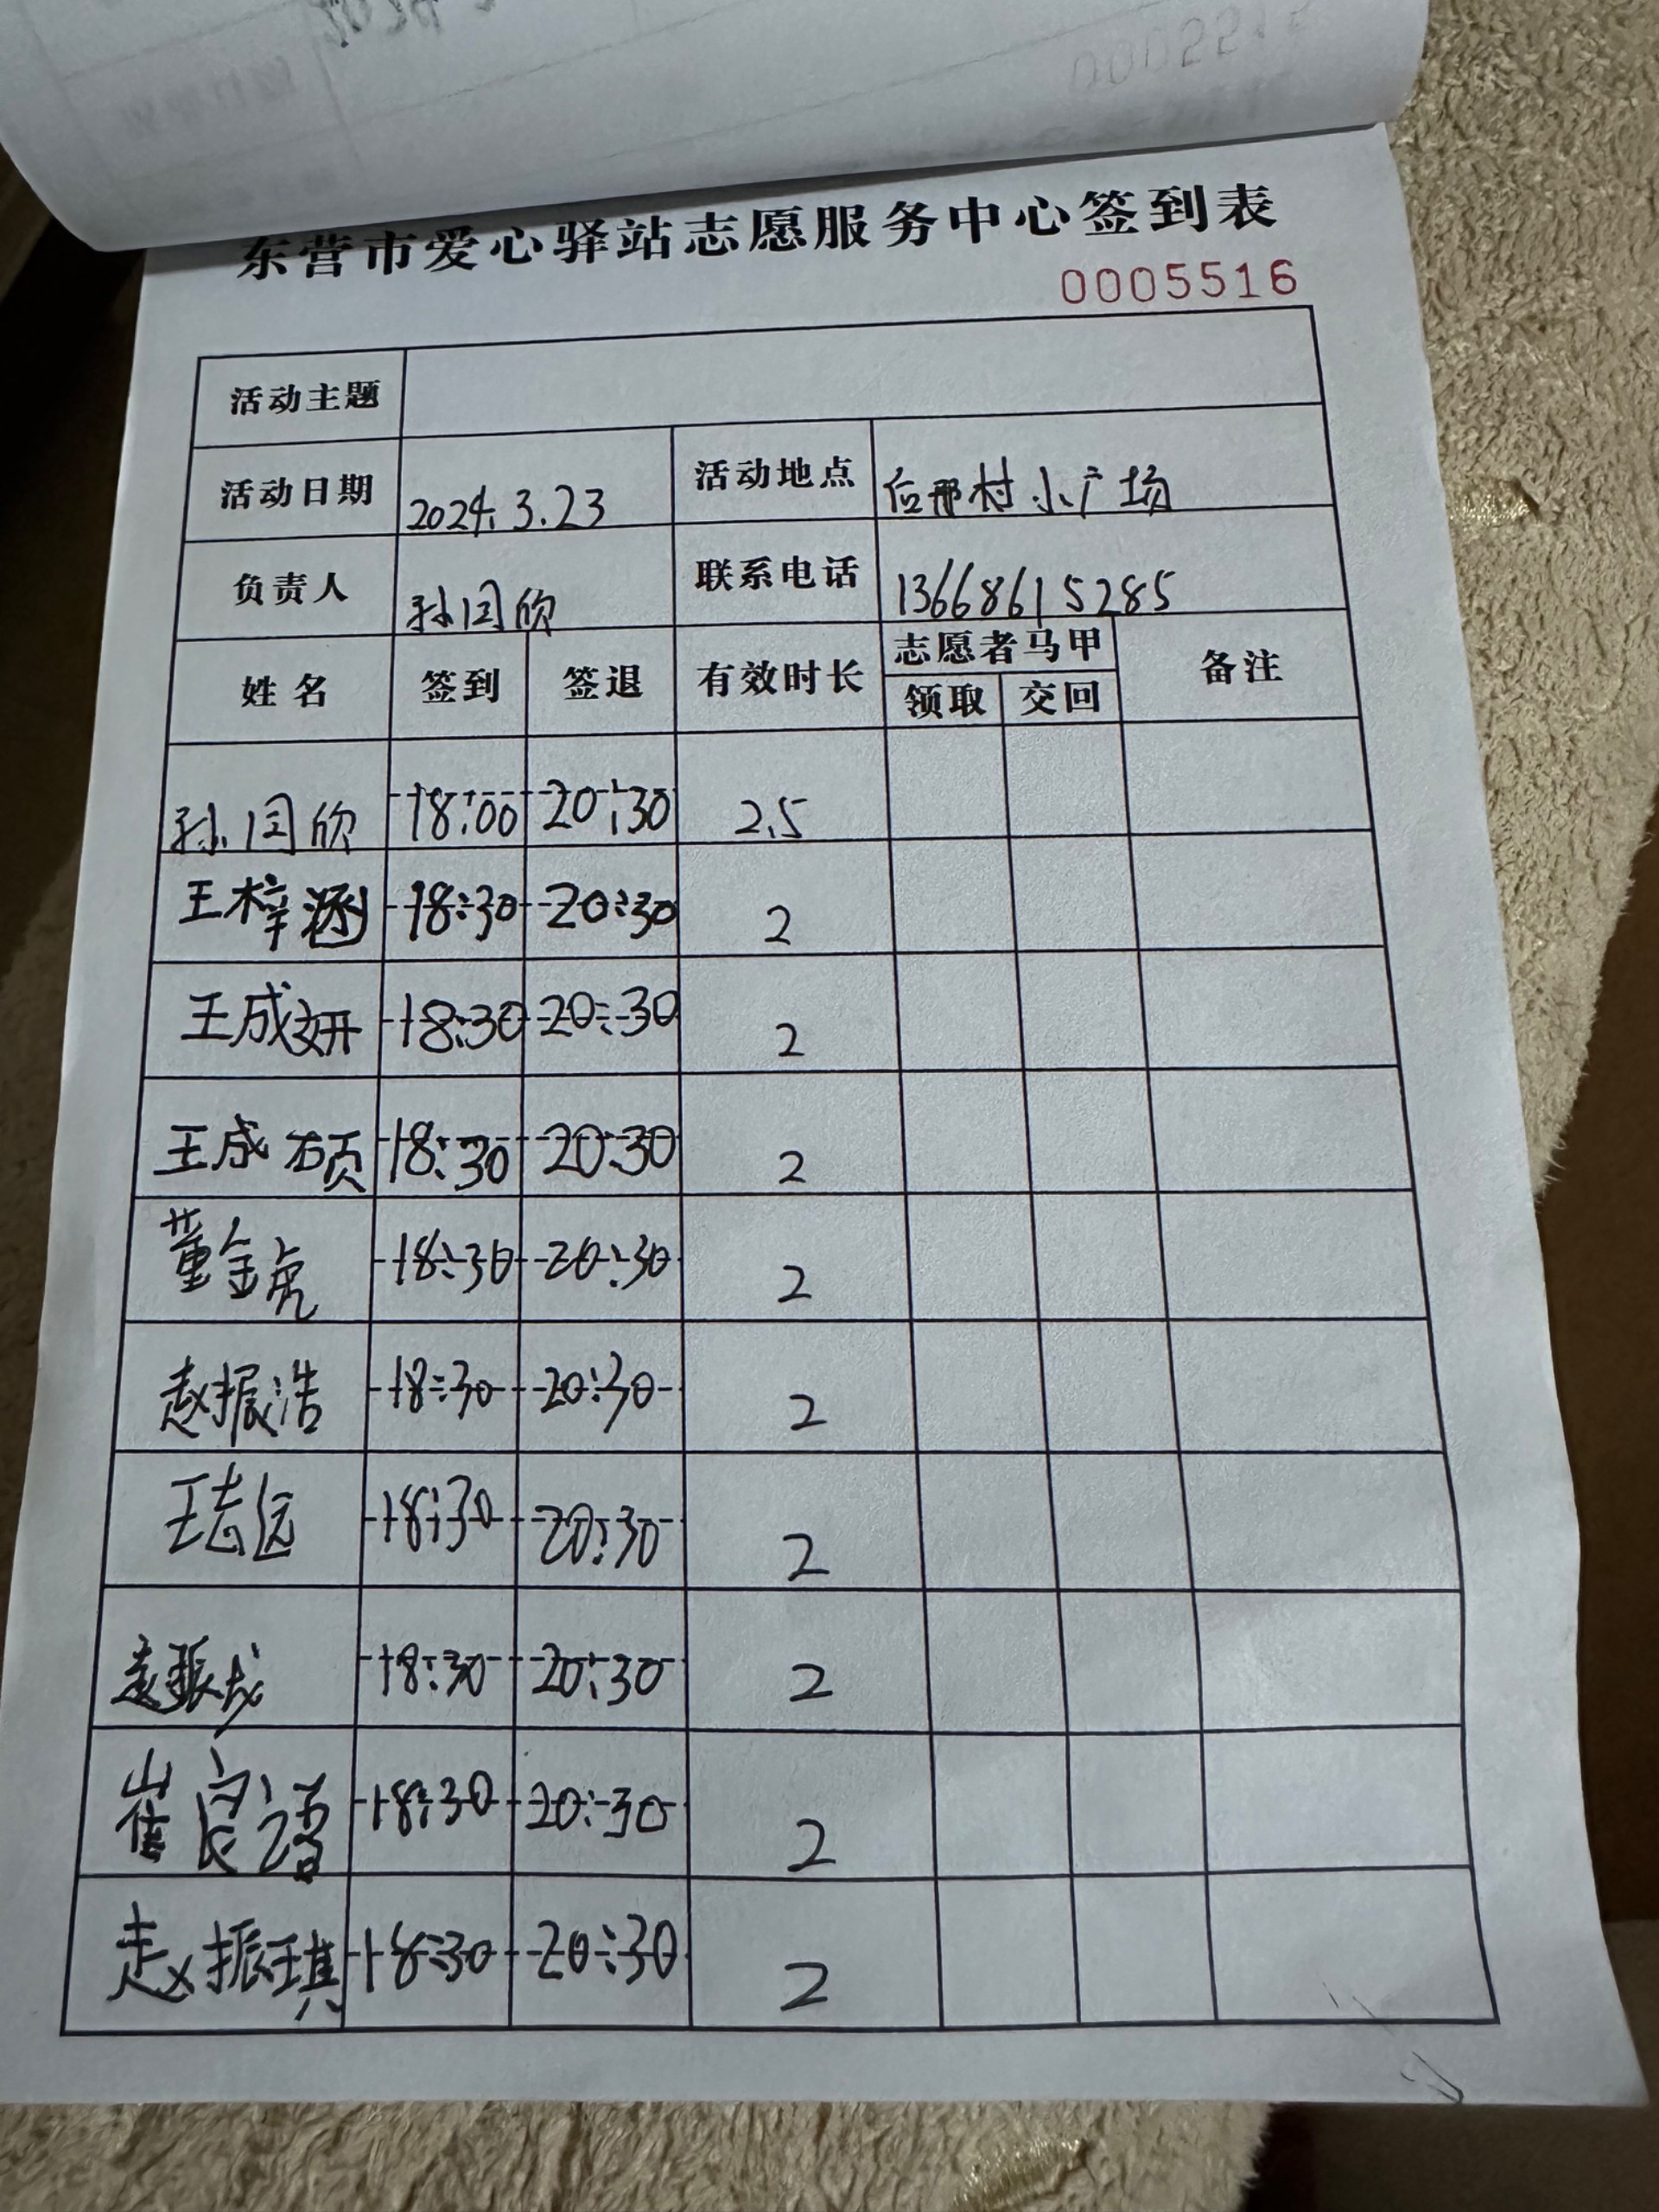 东营市爱心驿站志愿服务中心签到表
0005516
活动主题
活动日期 2024.3.23 活动地点 后邢村小广场
负责人 孙同欣 联系电话 13668615285
姓名 签到 签退 有效时长 志愿者马甲 备注
领取 交回
孙同欣 18:00 20:30 2.5
王梓涵 18:30 20:30 2
王成妍 18:30 20:30 2
王成硕 18:30 20:30 2
董金虎 18:30 20:30 2
赵振浩 18:30 20:30 2
王志远 18:30 20:30 2
赵振龙 18:30 20:30 2
崔良 18:30 20:30 2
赵振琪 18:30 20:30 2